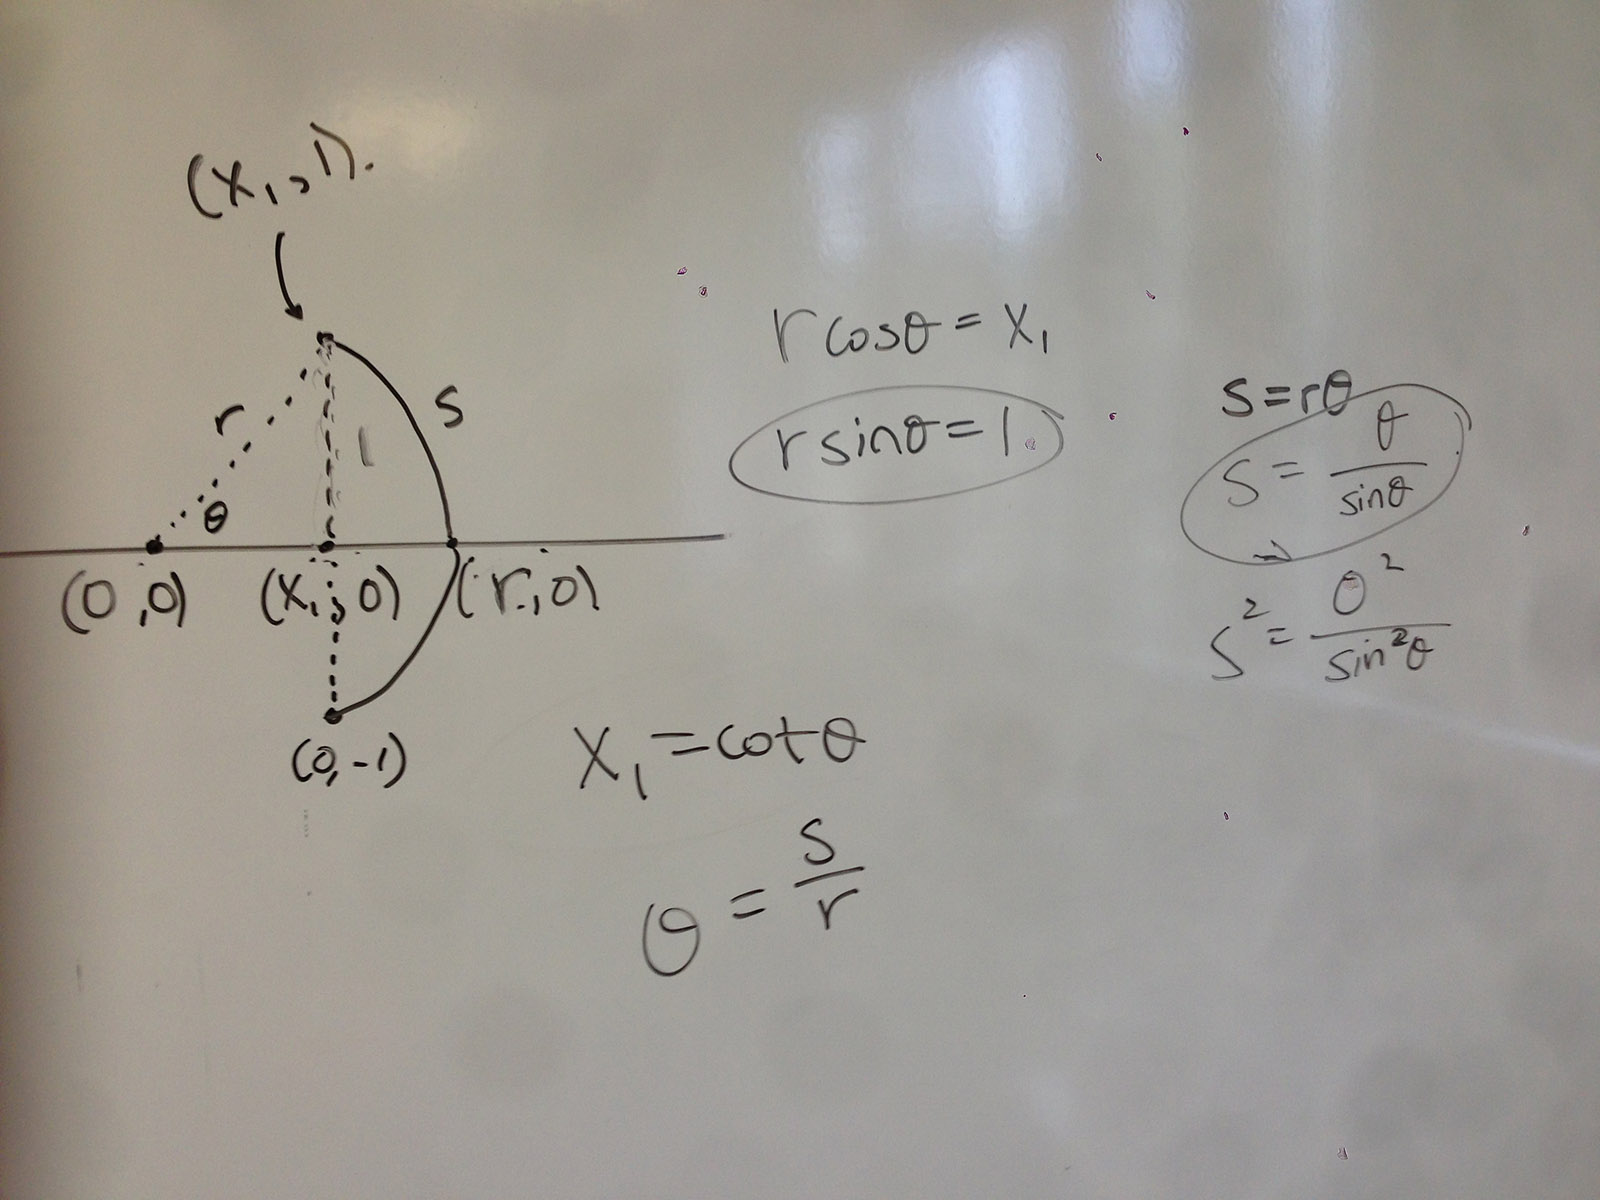 (x₁,1).
r
1
s
θ
(0,0)
(x₁,0)
(r,0)
(0,-1)
r cosθ = x₁
r sinθ = 1
x₁ = cotθ
θ = s/r
s = rθ
s = θ/sinθ
→
s² = θ²/sin²θ